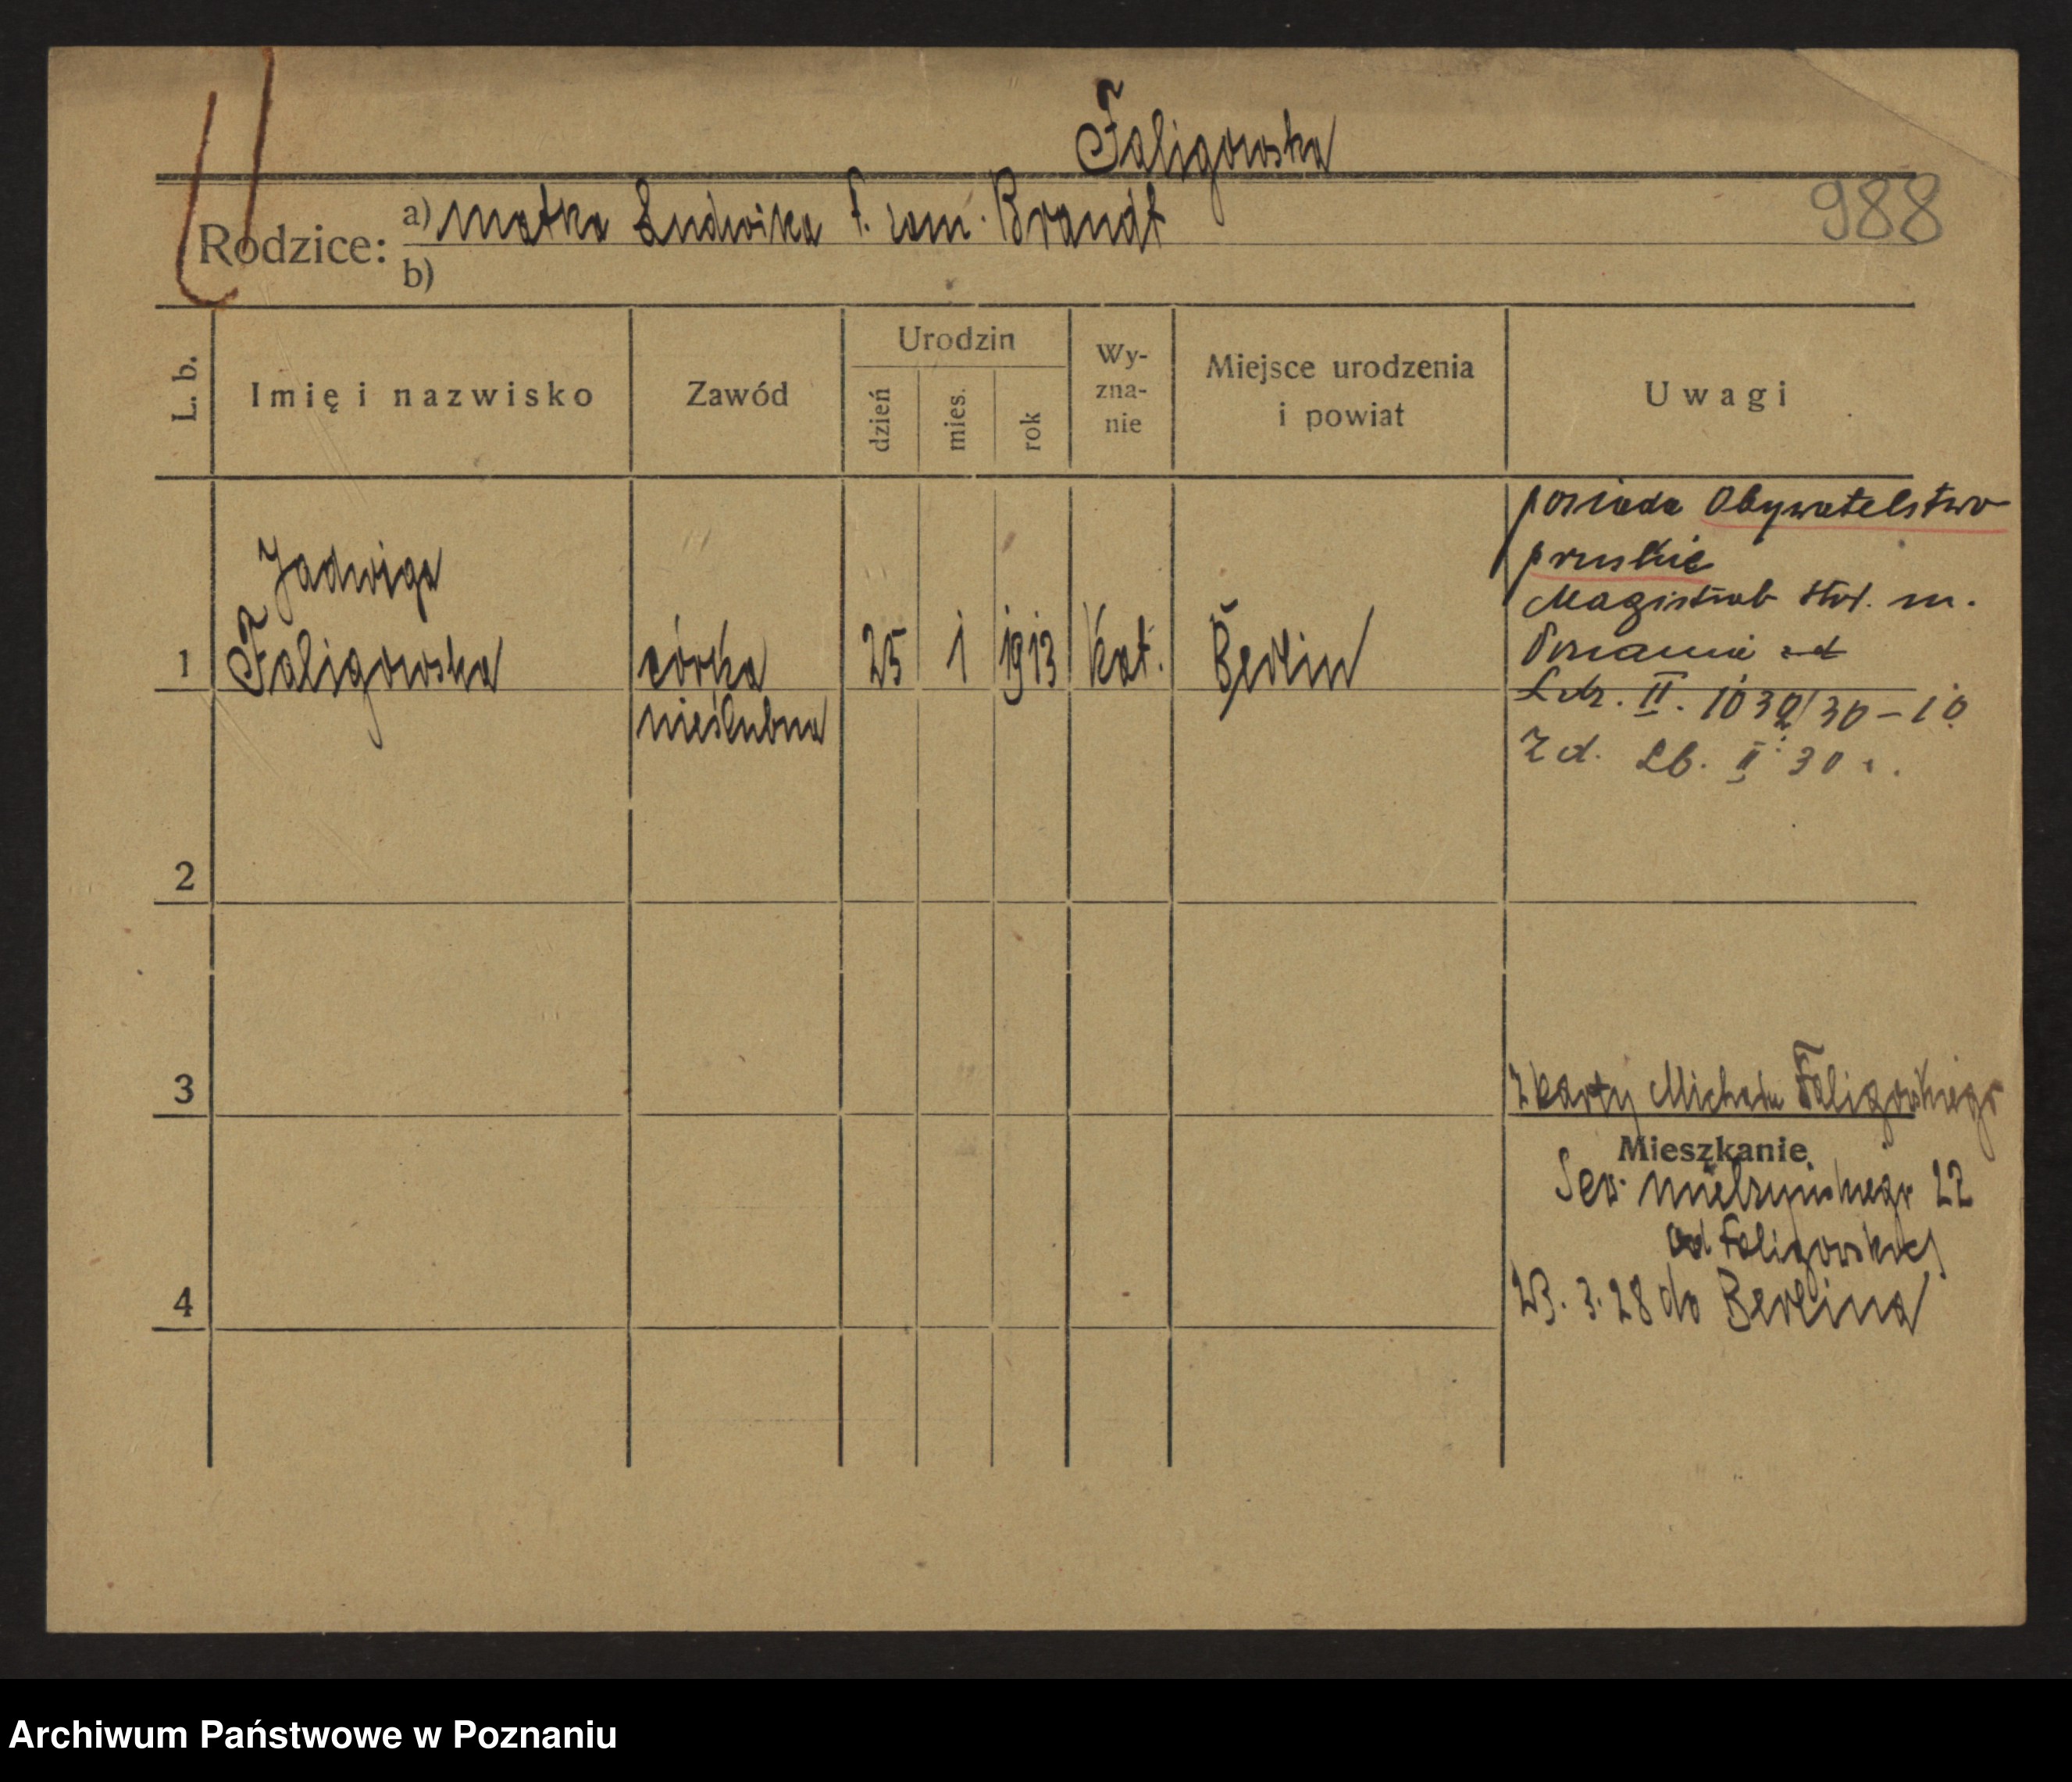 Faligowska
988
Rodzice: a) matka Ludwika F. zam. Brandt
b)
L. b.
Imię i nazwisko
Zawód
Urodzin
dzień
mies.
rok
Wy-
zna-
nie
Miejsce urodzenia
i powiat
Uwagi
1
Jadwiga
Faligowska
córka
nieślubna
25
1
1913
kat.
Berlin
posiada Obywatelstwo
pruskie
Magistrat stoł. m.
Poznania
L. dz. II. 1032/30-10
Zd. Lb. II 30 r.
2
3
z karty Michała Faligowskiego
Mieszkanie
Sew. Mielżyńskiego 22
od Faligowskiej
23. 3. 28 do Berlina
4
Archiwum Państwowe w Poznaniu